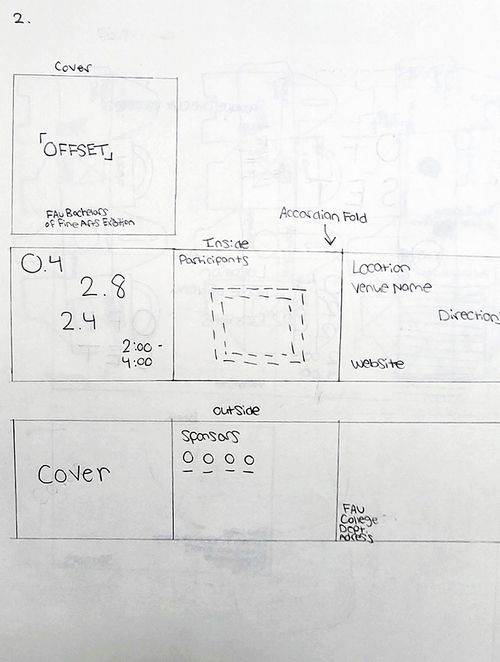 2.
Cover
「OFFSET」
FAU Bachelors
of Fine Arts Exibition
Accordian Fold
Inside
0.4
2.8
2.4
2:00 -
4:00
Participants
Location
Venue Name
Direction
Website
Outside
Cover
Sponsors
FAU
College
Dept.